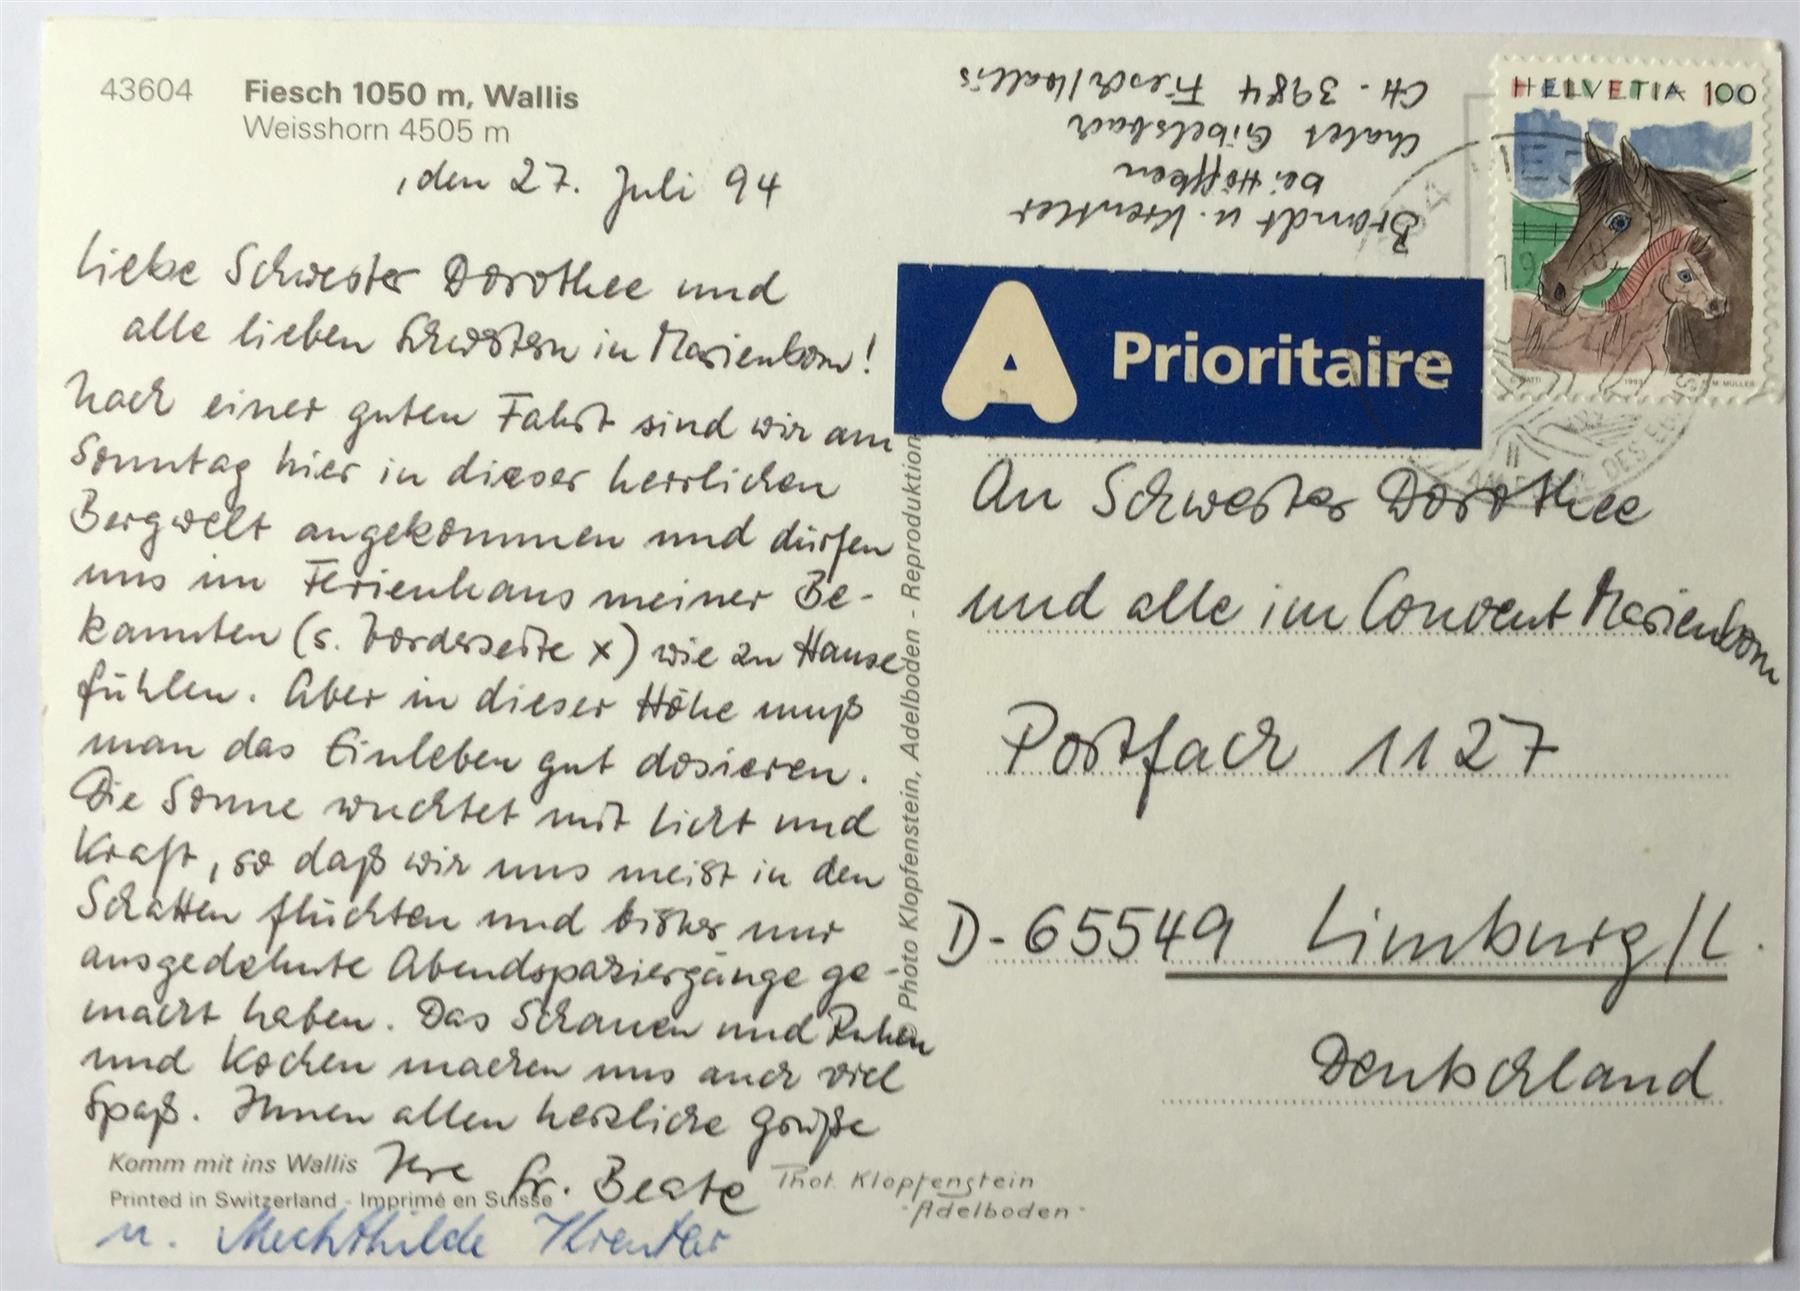 43604 Fiesch 1050 m, Wallis
Weisshorn 4505 m
, den 27. Juli 94
Liebe Schwester Dorothee und
alle lieben Schwestern in Marienborn!
Nach einer guten Fahrt sind wir am
Sonntag hier in dieser herrlichen
Bergwelt angekommen und dürfen
uns im Ferienhaus meiner Be-
kannten (s. Vorderseite x) wie zu Hause
fühlen. Aber in dieser Höhe muß
man das Einleben gut dosieren.
Die Sonne wuchtet mit Licht und
Kraft, so daß wir uns meist in den
Schatten flüchten und bisher nur
ausgedehnte Abendspaziergänge ge-
macht haben. Das Schauen und Ruhen
und Kochen machen uns auch viel
Spaß. Ihnen allen herzliche Grüße
Ihre Sr. Beate
u. Mechthilde Krentler
Komm mit ins Wallis
Printed in Switzerland - Imprimé en Suisse
Phot. Klopfenstein
- Adelboden -
Photo Klopfenstein, Adelboden - Reproduktion
Brandt u. Krentler
bei Höffken
Chalet Gibelsbach
CH - 3984 Fiesch/Wallis
HELVETIA 100
A Prioritaire
An Schwester Dorothee
und alle im Convent Marienborn
Postfach 1127
D-65549 Limburg/L.
Deutschland